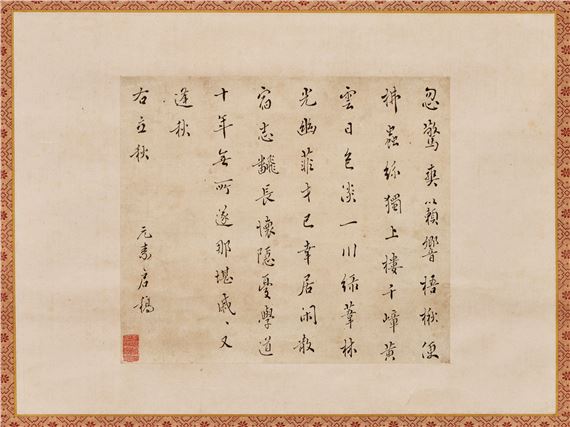 忽驚爽籟響梧楸便
拂蟲絲獨上樓千嶂黃
雲日色淡一川綠葦林
光幽菲才已幸居閑散
宿志飜長懷隱憂學道
十年無所遂那堪戚〻又
逢秋
右立秋
元素 稿